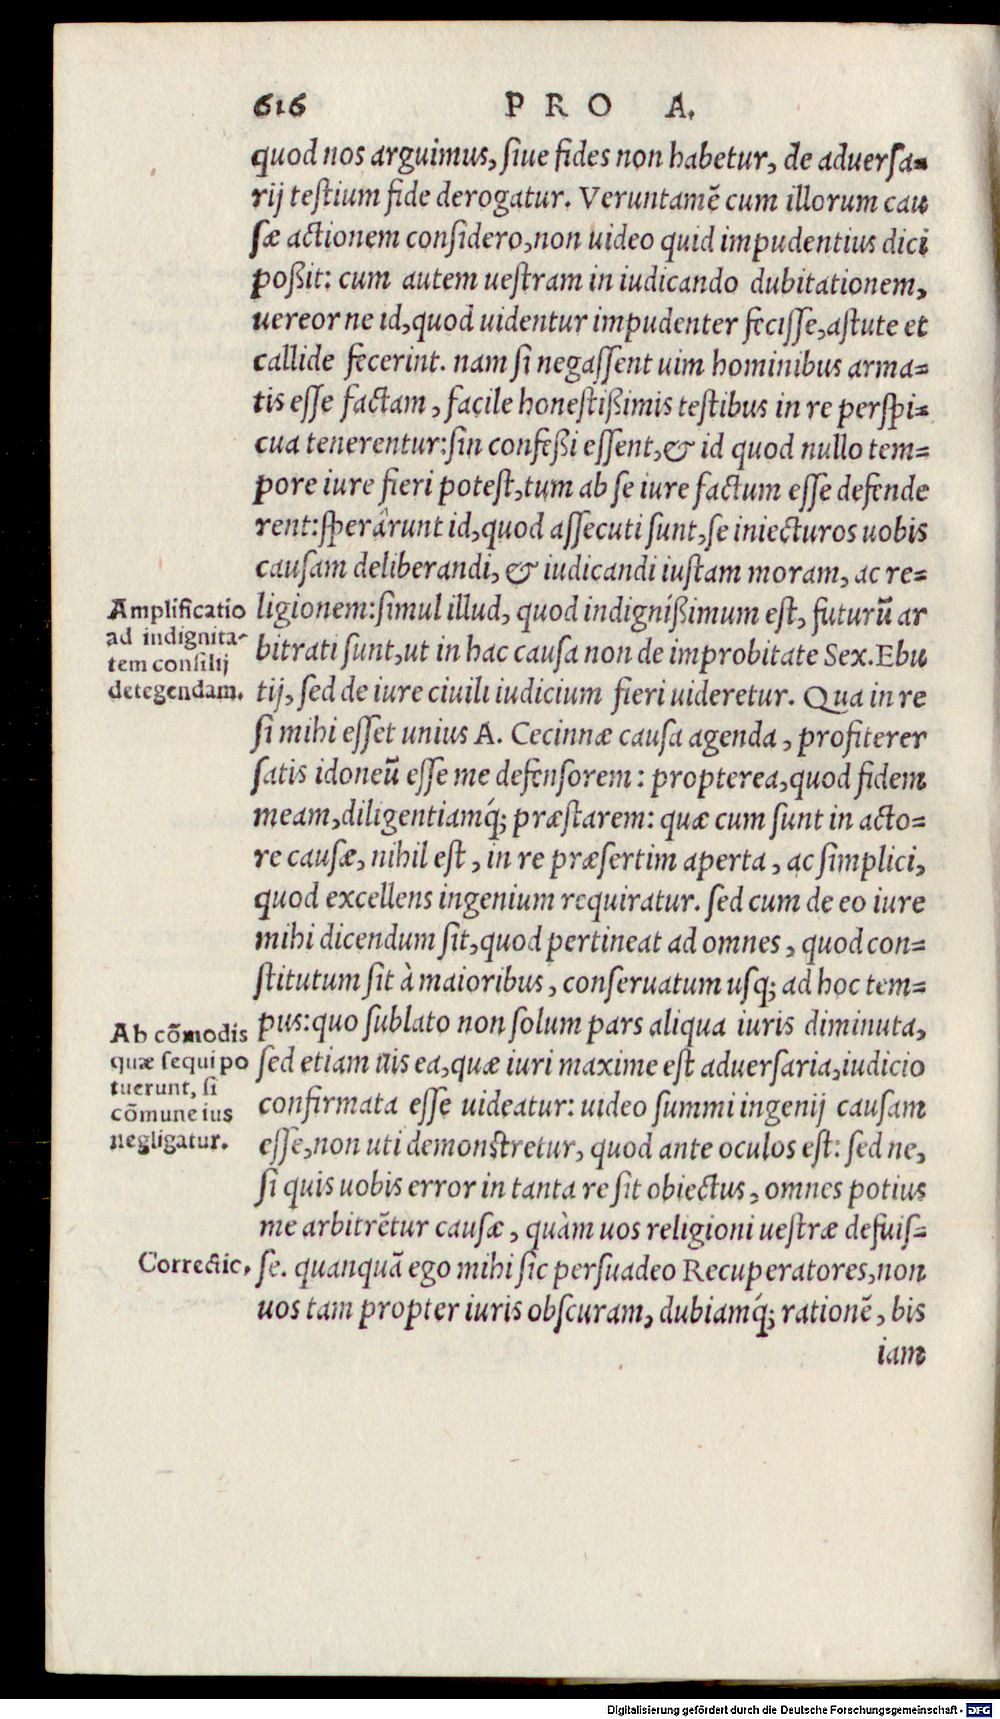 616 PRO A.
quod nos arguimus, siue fides non habetur, de aduersa-
rij testium fide derogatur. Veruntamē cum illorum cau
sæ actionem considero, non uideo quid impudentius dici
poßit: cum autem uestram in iudicando dubitationem,
uereor ne id, quod uidentur impudenter fecisse, astute et
callide fecerint. nam si negassent uim hominibus arma-
tis esse factam, facile honestißimis testibus in re perspi-
cua tenerentur: sin confeßi essent, & id quod nullo tem-
pore iure fieri potest, tum ab se iure factum esse defende
rent: sperârunt id, quod assecuti sunt, se iniecturos uobis
causam deliberandi, & iudicandi iustam moram, ac re-
Amplificatio
ad indignita-
tem consilij
detegendam.
ligionem: simul illud, quod indignißimum est, futurū ar
bitrati sunt, ut in hac causa non de improbitate Sex. Ebu
tij, sed de iure ciuili iudicium fieri uideretur. Qua in re
si mihi esset unius A. Cecinnæ causa agenda, profiterer
satis idoneū esse me defensorem: propterea, quod fidem
meam, diligentiamq́; præstarem: quæ cum sunt in acto-
re causæ, nihil est, in re præsertim aperta, ac simplici,
quod excellens ingenium requiratur. sed cum de eo iure
mihi dicendum sit, quod pertineat ad omnes, quod con-
stitutum sit à maioribus, conseruatum usq; ad hoc tem-
Ab cōmodis
quæ sequi po
tuerunt, si
cōmune ius
negligatur.
pus: quo sublato non solum pars aliqua iuris diminuta,
sed etiam uis ea, quæ iuri maxime est aduersaria, iudicio
confirmata esse uideatur: uideo summi ingenij causam
esse, non uti demonstretur, quod ante oculos est: sed ne,
si quis uobis error in tanta re sit obiectus, omnes potius
me arbitrētur causæ, quàm uos religioni uestræ defuis-
Correctio.
se. quanquā ego mihi sic persuadeo Recuperatores, non
uos tam propter iuris obscuram, dubiamq́; rationē, bis
iam
Digitalisierung gefördert durch die Deutsche Forschungsgemeinschaft - DFG